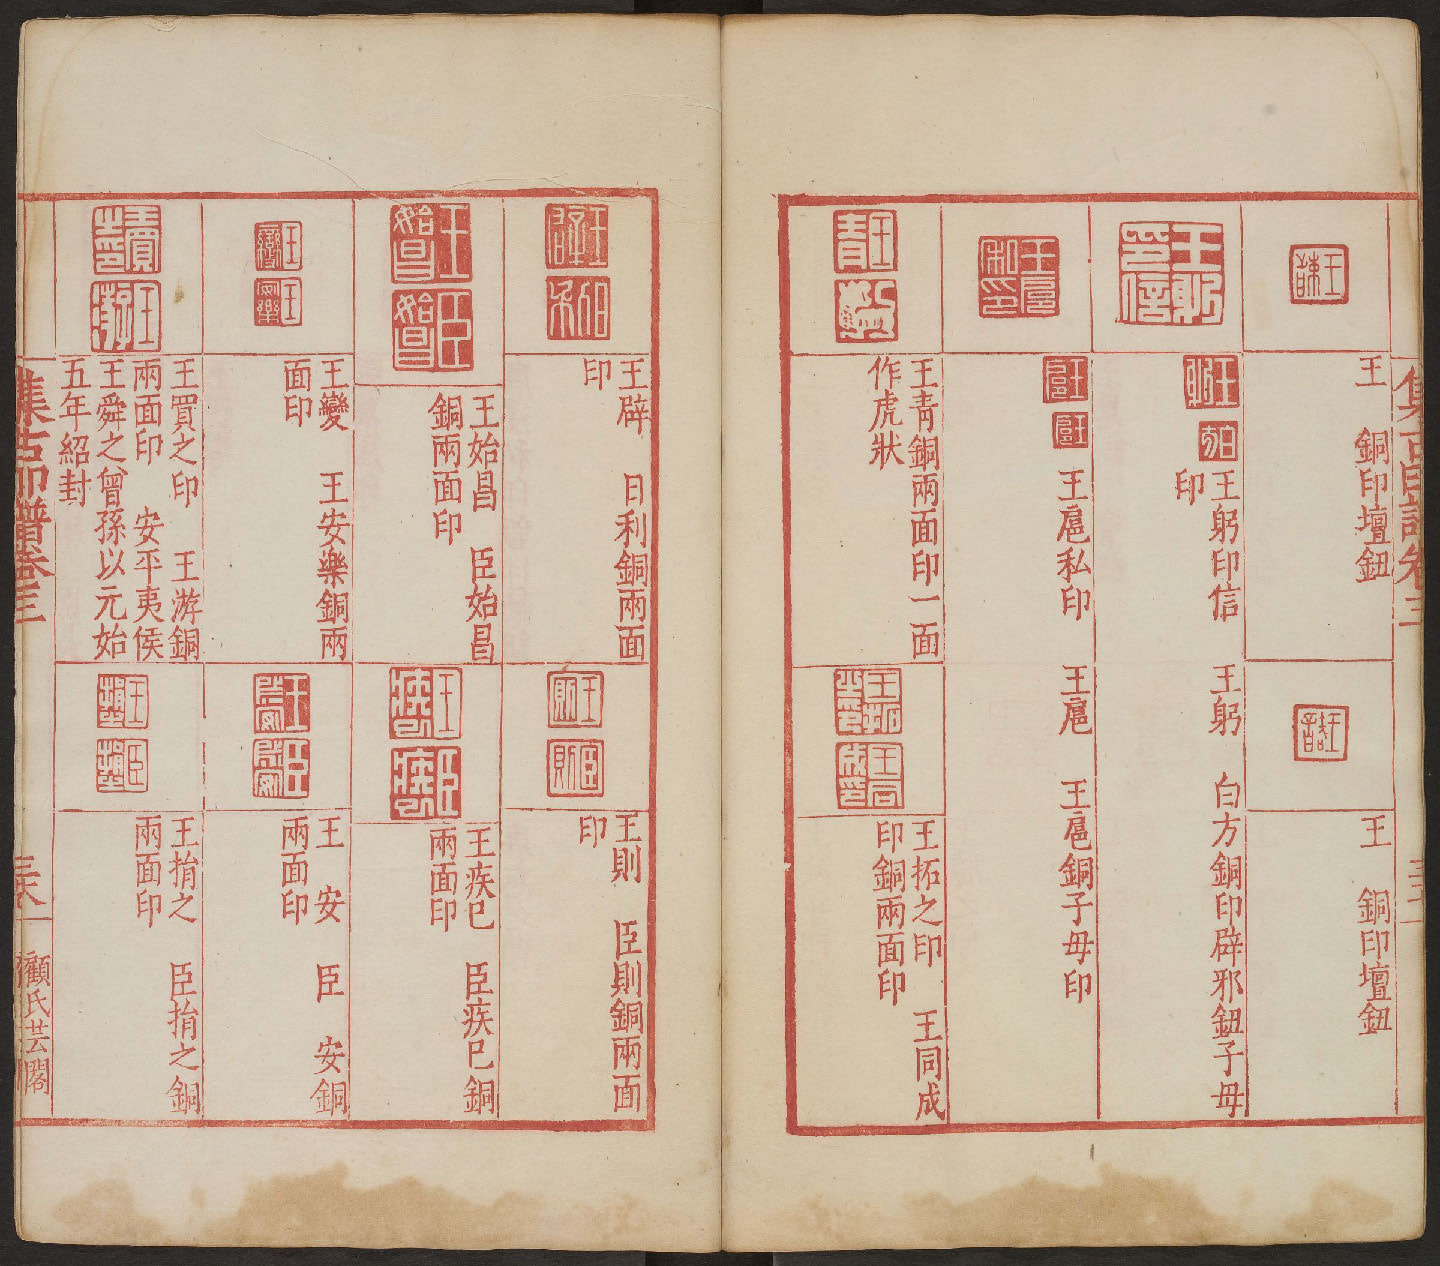 集古印譜卷三
王　銅印壇鈕
王　銅印壇鈕
王躬印信　王躬　白方銅印辟邪鈕子毋
印
王扈私印　王扈　王扈銅子毋印
王青銅兩面印一面
作虎狀
王拓之印　王同成
印銅兩面印
王辟　日利銅兩面
印
王則　臣則銅兩面
印
王始昌　臣始昌
銅兩面印
王疾已　臣疾已銅
兩面印
王變　王安樂銅兩
面印
王　安　臣　安銅
兩面印
王買之印　王游銅
兩面印　安平夷侯
王舜之曾孫以元始
五年紹封
王揹之　臣揹之銅
兩面印
集古印譜卷三
顧氏芸閣